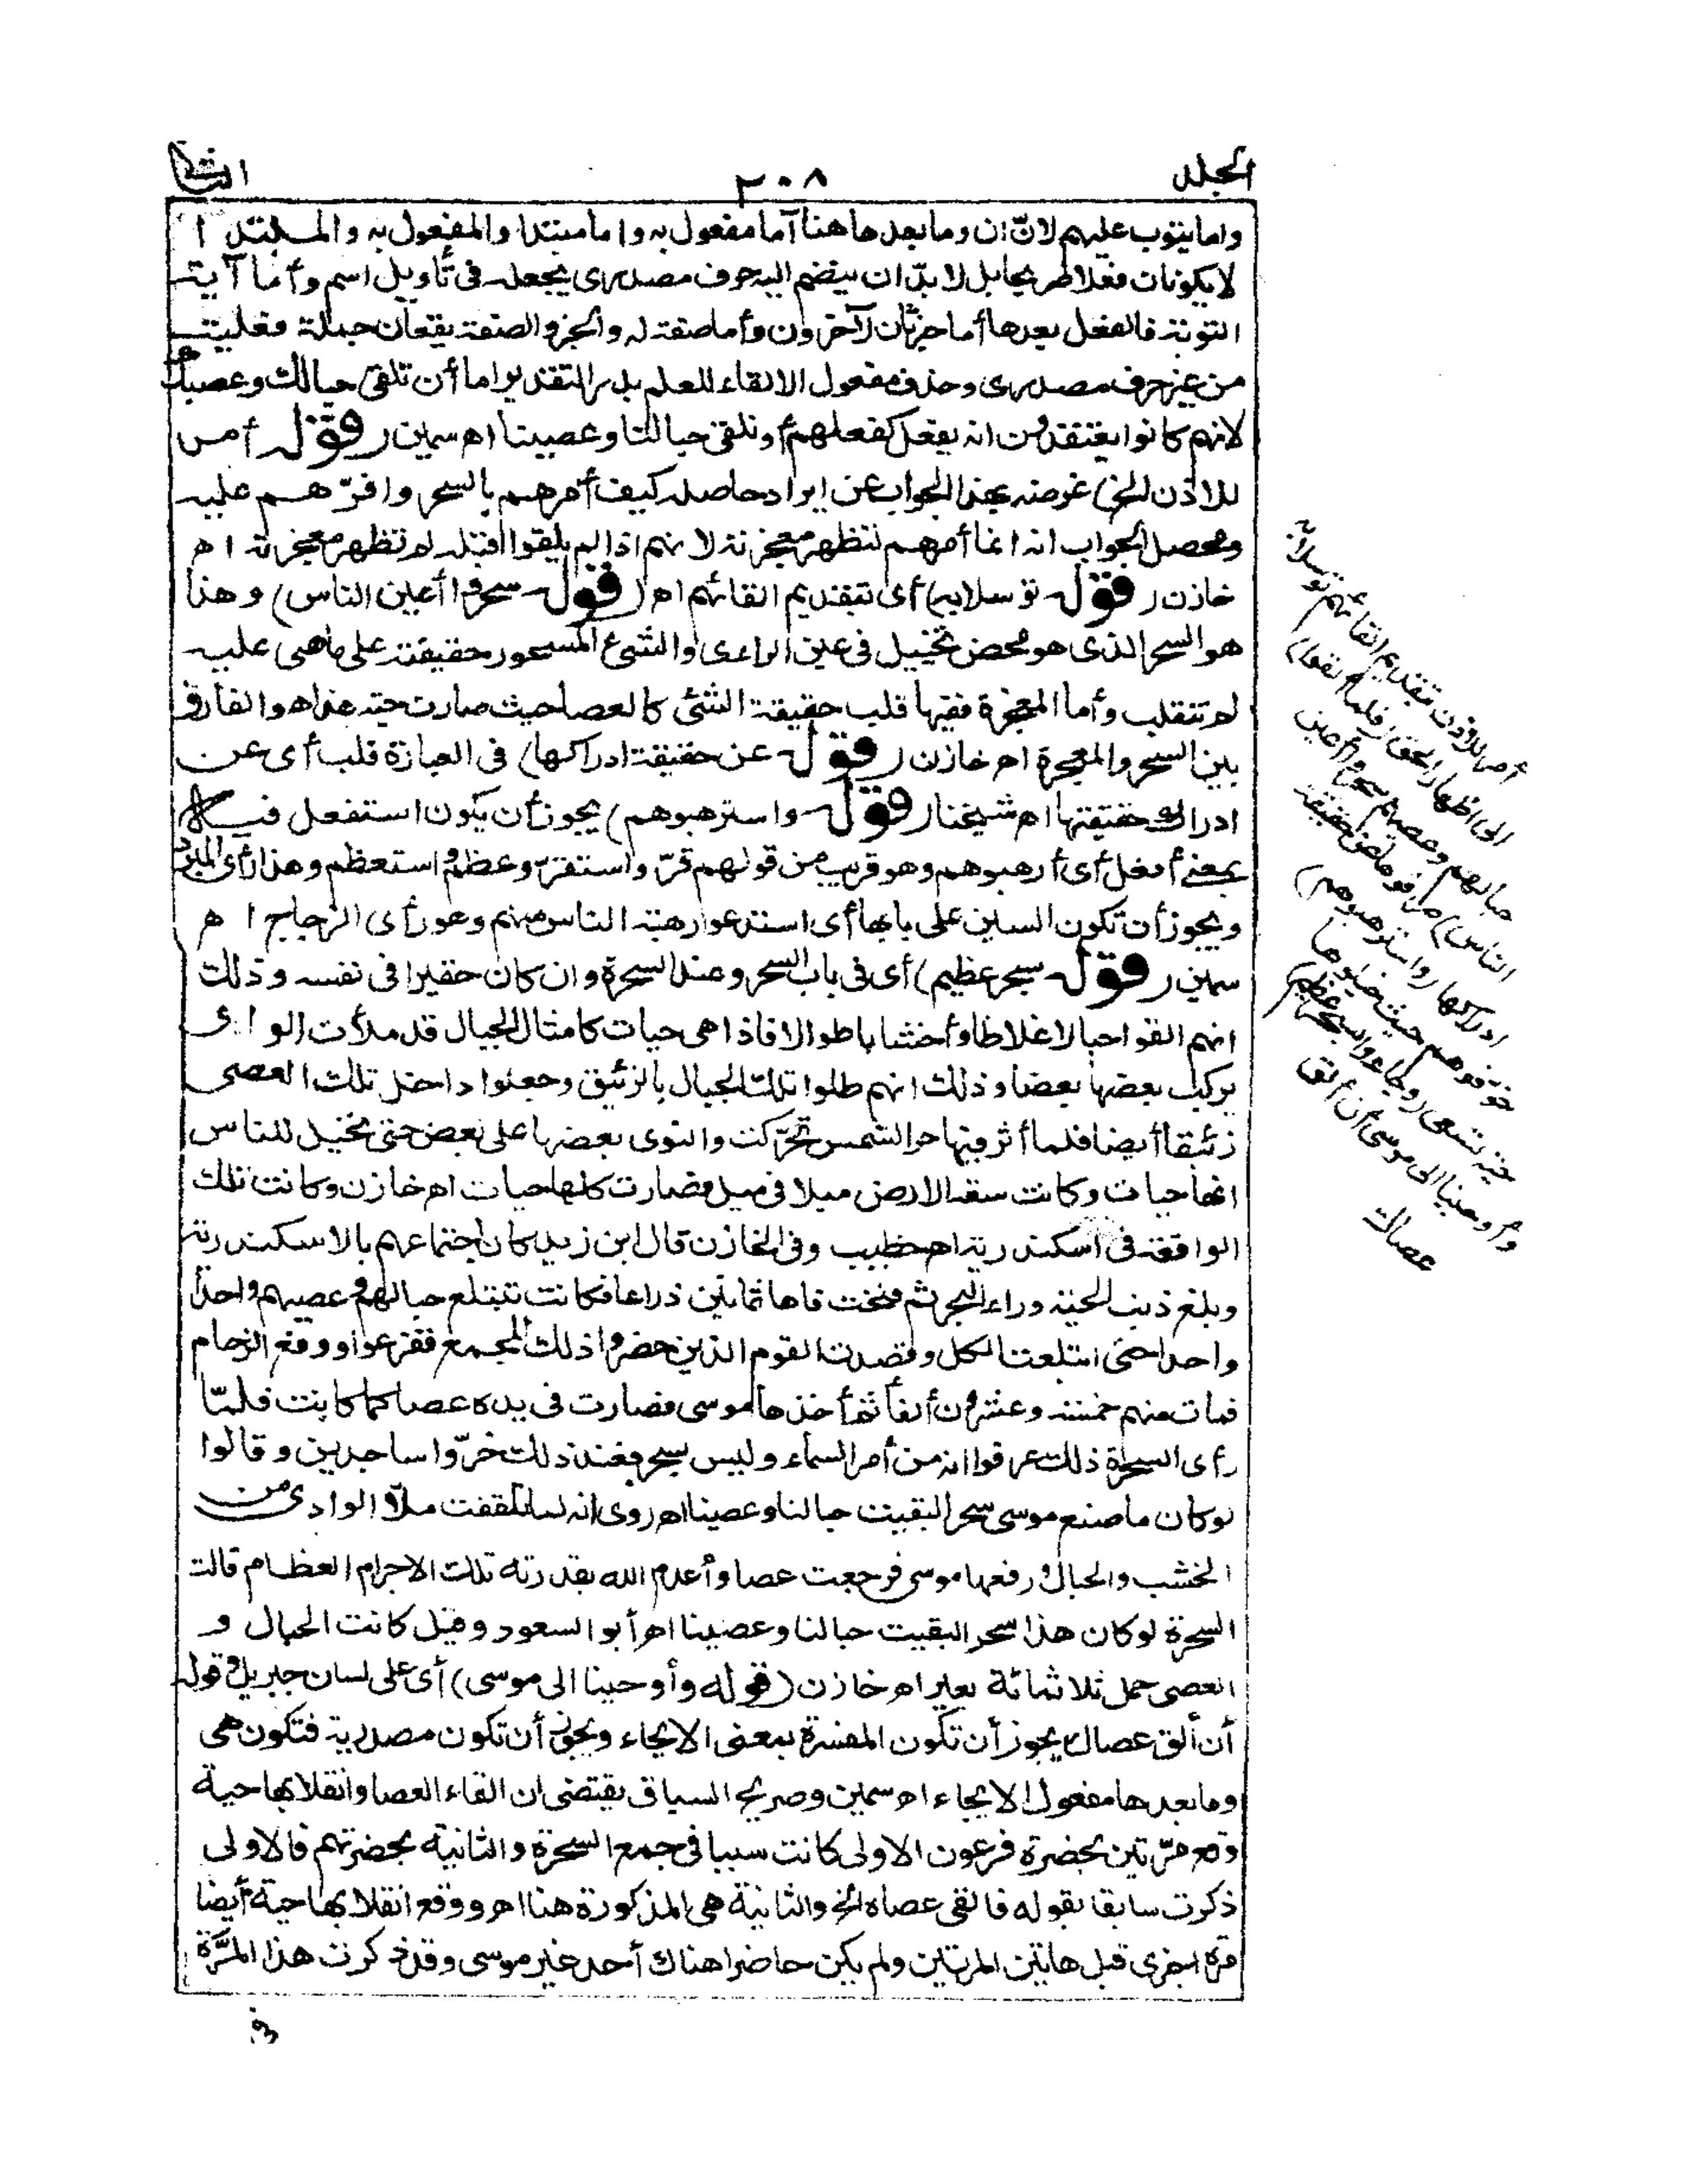 المجلد
٢٠٨
الثانى
واما يتوب عليهم لانّ ان وما بعدها هنا أما مفعول به واما مبتدا والمفعول به والمبتدا
لا يكونان فعلا صريحا بل لا بدّ ان ينضم اليه حرف مصدرى يجعله فى تأويل اسم وأما آية
التوبة فالفعل بعدها أما خبر ثان لآخرون وأما صفة له والخبر والصفة يقعان جملة فعلية
من غير حرف مصدرى وحذف مفعول الالقاء للعلم به والتقدير اما أن تلقى حبالك وعصيك
لانهم كانوا يعتقدون انه يفعل كفعلهم أو نلقى حبالنا وعصينا اه سمين (قوله أمر
للاذن الخ) غرضه بهذا الجواب عن ايراد حاصله كيف أمرهم بالسحر واقرّهم عليه
ومحصل الجواب انه انما أمرهم لتظهر معجزته لانهم اذا لم يلقوا قبله لم تظهر معجزته اه
خازن (قوله توسلا به) أى بتقديم القائهم اه (قوله سحروا أعين الناس) وهذا
هو السحر الذى هو محض تخييل فى عين الرائى والشىء المسحور حقيقته على ما هى عليه
لم تنقلب وأما المعجزة ففيها قلب حقيقة الشئ كالعصا حيث صارت حية هذا هو الفارق
بين السحر والمعجزة اه خازن (قوله عن حقيقة ادراكها) فى العبارة قلب أى عن
ادراك حقيقتها اه شيخنا (قوله واسترهبوهم) يجوز أن يكون استفعل فيه
بمعنى أفعل أى أرهبوهم وهو قريب من قولهم قرّ واستقرّ وعظم واستعظم وهذا رأى المبرد
ويجوز أن تكون السين على بابها أى استدعوا رهبة الناس منهم وهو رأى الزجاج اه
سمين (قوله بسحر عظيم) أى فى باب السحر وعند السحرة وان كان حقيرا فى نفسه وذلك
انهم القوا حبالا غلاظا وأخشابا طوالا فاذا هى حيات كامثال الجبال قد ملأت الوادى
يركب بعضها بعضا وذلك انهم طلوا تلك الحبال بالزئبق وجعلوا داخل تلك العصى
زئبقا أيضا فلما أثر فيها حر الشمس تحرّكت والتوى بعضها على بعض حتى تخيل للناس
انها حيات وكانت سعة الارض ميلا فى ميل فصارت كلها حيات اه خازن وكانت تلك
الواقعة فى اسكندرية اه خطيب وفى الخازن قال ابن زيد كان اجتماعهم بالاسكندرية
وبلغ ذنب الحية وراء البحر ثم فتحت فاها ثمانين ذراعا فكانت تبتلع حبالهم وعصيهم واحدا
واحدا حتى ابتلعت الكل وقصدت القوم الذين حضروا ذلك المجمع ففزعوا ووقع الزحام
فمات منهم خمسة وعشرون ألفا ثم أخذها موسى فصارت فى يده عصا كما كانت فلمّا
رأى السحرة ذلك عرفوا انه من أمر السماء وليس بسحر فعند ذلك خرّوا ساجدين وقالوا
لو كان ما صنع موسى سحرا لبقيت حبالنا وعصينا اه روى انه لما تلقفت ملأ الوادى من
الخشب والحبال ورفعها موسى فرجعت عصا وأعدم الله بقدرته تلك الاجرام العظام قالت
السحرة لو كان هذا سحرا لبقيت حبالنا وعصينا اه أبو السعود وقيل كانت الحبال و
العصى حمل ثلاثمائة بعير اه خازن (قوله وأوحينا الى موسى) أى على لسان جبريل وقوله
أن ألق عصاك يجوز أن تكون المفسرة بمعنى الايحاء ويجوز أن تكون مصدرية فتكون هى
وما بعدها مفعول الايحاء اه سمين وصريح السياق يقتضى ان القاء العصا وانقلابها حية
وقع مرّتين بحضرة فرعون الاولى كانت سببا فى جمع السحرة والثانية بحضرتهم فالاولى
ذكرت سابقا بقوله فالقى عصاه الخ والثانية هى المذكورة هنا اه ووقع انقلابها حية أيضا
مرة اخرى قبل هاتين المرتين ولم يكن حاضرا هناك أحد غير موسى وقد ذكرت هذا المرّة
أمر للاذن بتقديم القائهم توسلا به
الى اظهار الحق (فلما ألقوا)
حبالهم وعصيهم (سحروا أعين
الناس) صرفوها عن حقيقة
ادراكها (واسترهبوهم)
خوّفوهم حيث خيلوها
حية تسعى (وجاءوا بسحر عظيم)
وأوحينا الى موسى أن ألق
عصاك